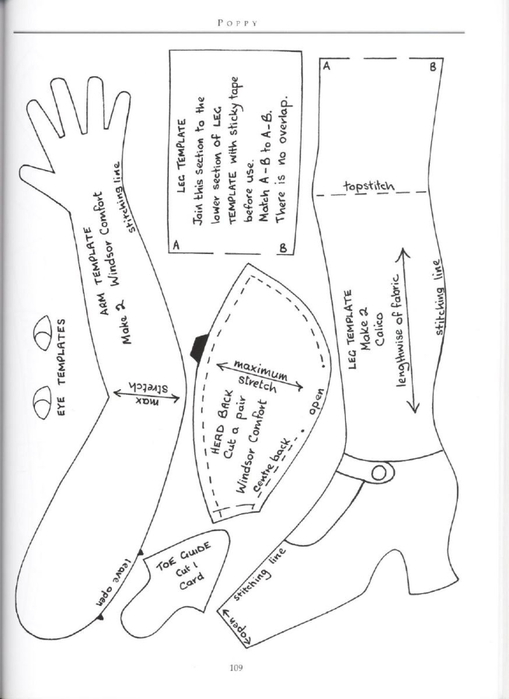 POPPY
LEG TEMPLATE
Join this section to the
lower section of LEG
TEMPLATE with sticky tape
before use.
Match A-B to A-B.
There is no overlap.
A
B
A
B
topstitch
stitching line
ARM TEMPLATE
Make 2 Windsor Comfort
stitching line
max
stretch
leave open
EYE TEMPLATES
LEG TEMPLATE
Make 2
Calico
lengthwise of fabric
maximum
stretch
HEAD BACK
Cut a pair
Windsor Comfort
centre back
open
TOE GUIDE
Cut 1
Card
stitching line
open
109